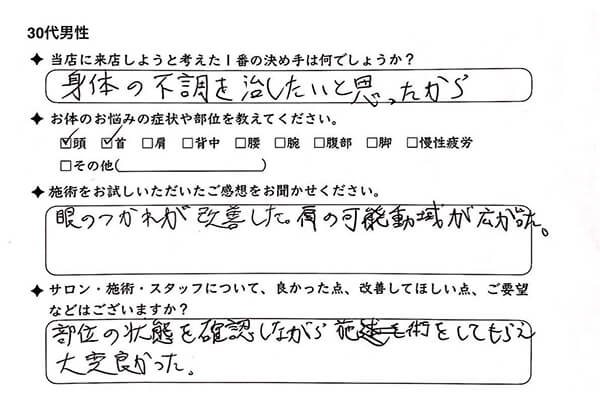 30代男性
✦ 当店に来店しようと考えた1番の決め手は何でしょうか？
身体の不調を治したいと思ったから
✦ お体のお悩みの症状や部位を教えてください。
☑頭 ☑首 □肩 □背中 □腰 □腕 □腹部 □脚 □慢性疲労
□その他( )
✦ 施術をお試しいただいたご感想をお聞かせください。
眼のつかれが改善した。肩の可能動域が広がった。
✦ サロン・施術・スタッフについて、良かった点、改善してほしい点、ご要望
などはございますか？
部位の状態を確認しながら施術をしてもらえ
大変良かった。